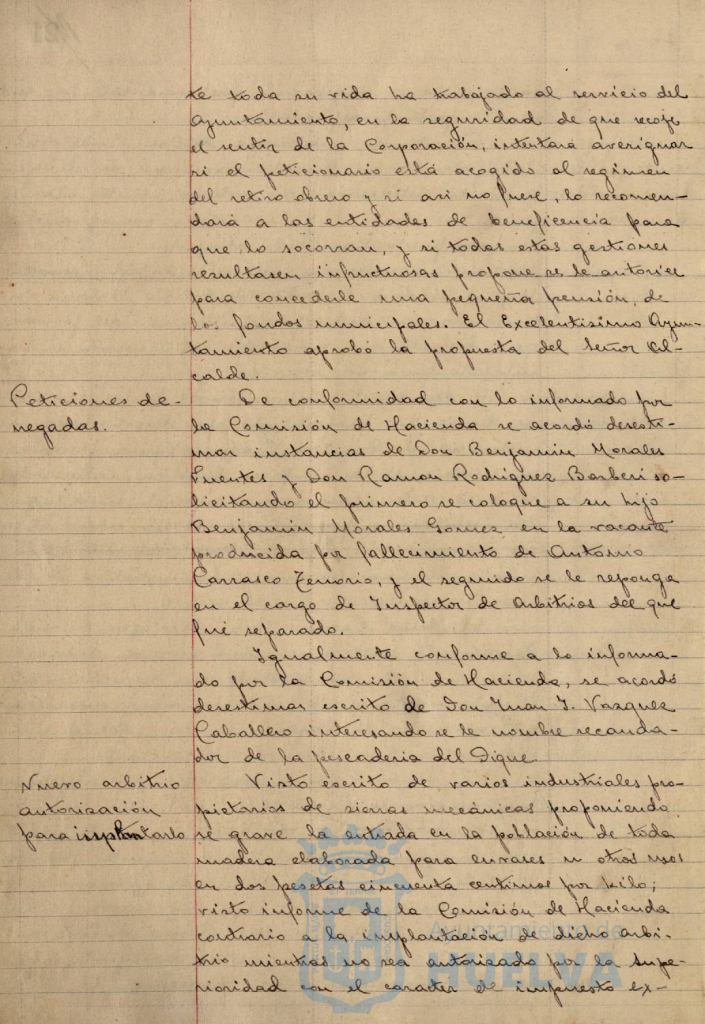 te toda su vida ha trabajado al servicio del
Ayuntamiento, en la seguridad de que recoje
el sentir de la Corporación, intentará averiguar
si el peticionario está acogido al regimen
del retiro obrero y si asi no fuese, lo recomen-
dará a las entidades de beneficencia para
que lo socorran, y si todas estas gestiones
resultasen infructuosas propone se le autorice
para concederle una pequeña pensión, de
los fondos municipales. El Excelentisimo Ayun-
tamiento aprobó la propuesta del Señor Al-
calde.
Peticiones de-
negadas.
De conformidad con lo informado por
la Comisión de Hacienda se acordó desesti-
mar instancias de Don Benjamin Morales
Fuentes y Don Ramon Rodriguez Barberi so-
licitando el primero se coloque a su hijo
Benjamin Morales Gomez en la vacante
producida por fallecimiento de Antonio
Carrasco Tenorio, y el segundo se le reponga
en el cargo de Inspector de Arbitrios del que
fué separado.
Igualmente conforme a lo informa-
do por la Comisión de Hacienda, se acordó
desestimar escrito de Don Juan J. Vazquez
Caballero interesando se le nombre recauda-
dor de la pescaderia del Dique.
Nuevo arbitrio
autorización
para implantarlo
Visto escrito de varios industriales pro-
pietarios de sierras mecánicas proponiendo
se grave la entrada en la población de toda
madera elaborada para envases u otros usos
en dos pesetas cincuenta centimos por kilo;
visto informe de la Comisión de Hacienda
contrario a la implantación de dicho arbi-
trio mientras no sea autorizado por la Supe-
rioridad con el caracter de impuesto ex-
Ayuntamiento de
HUELVA